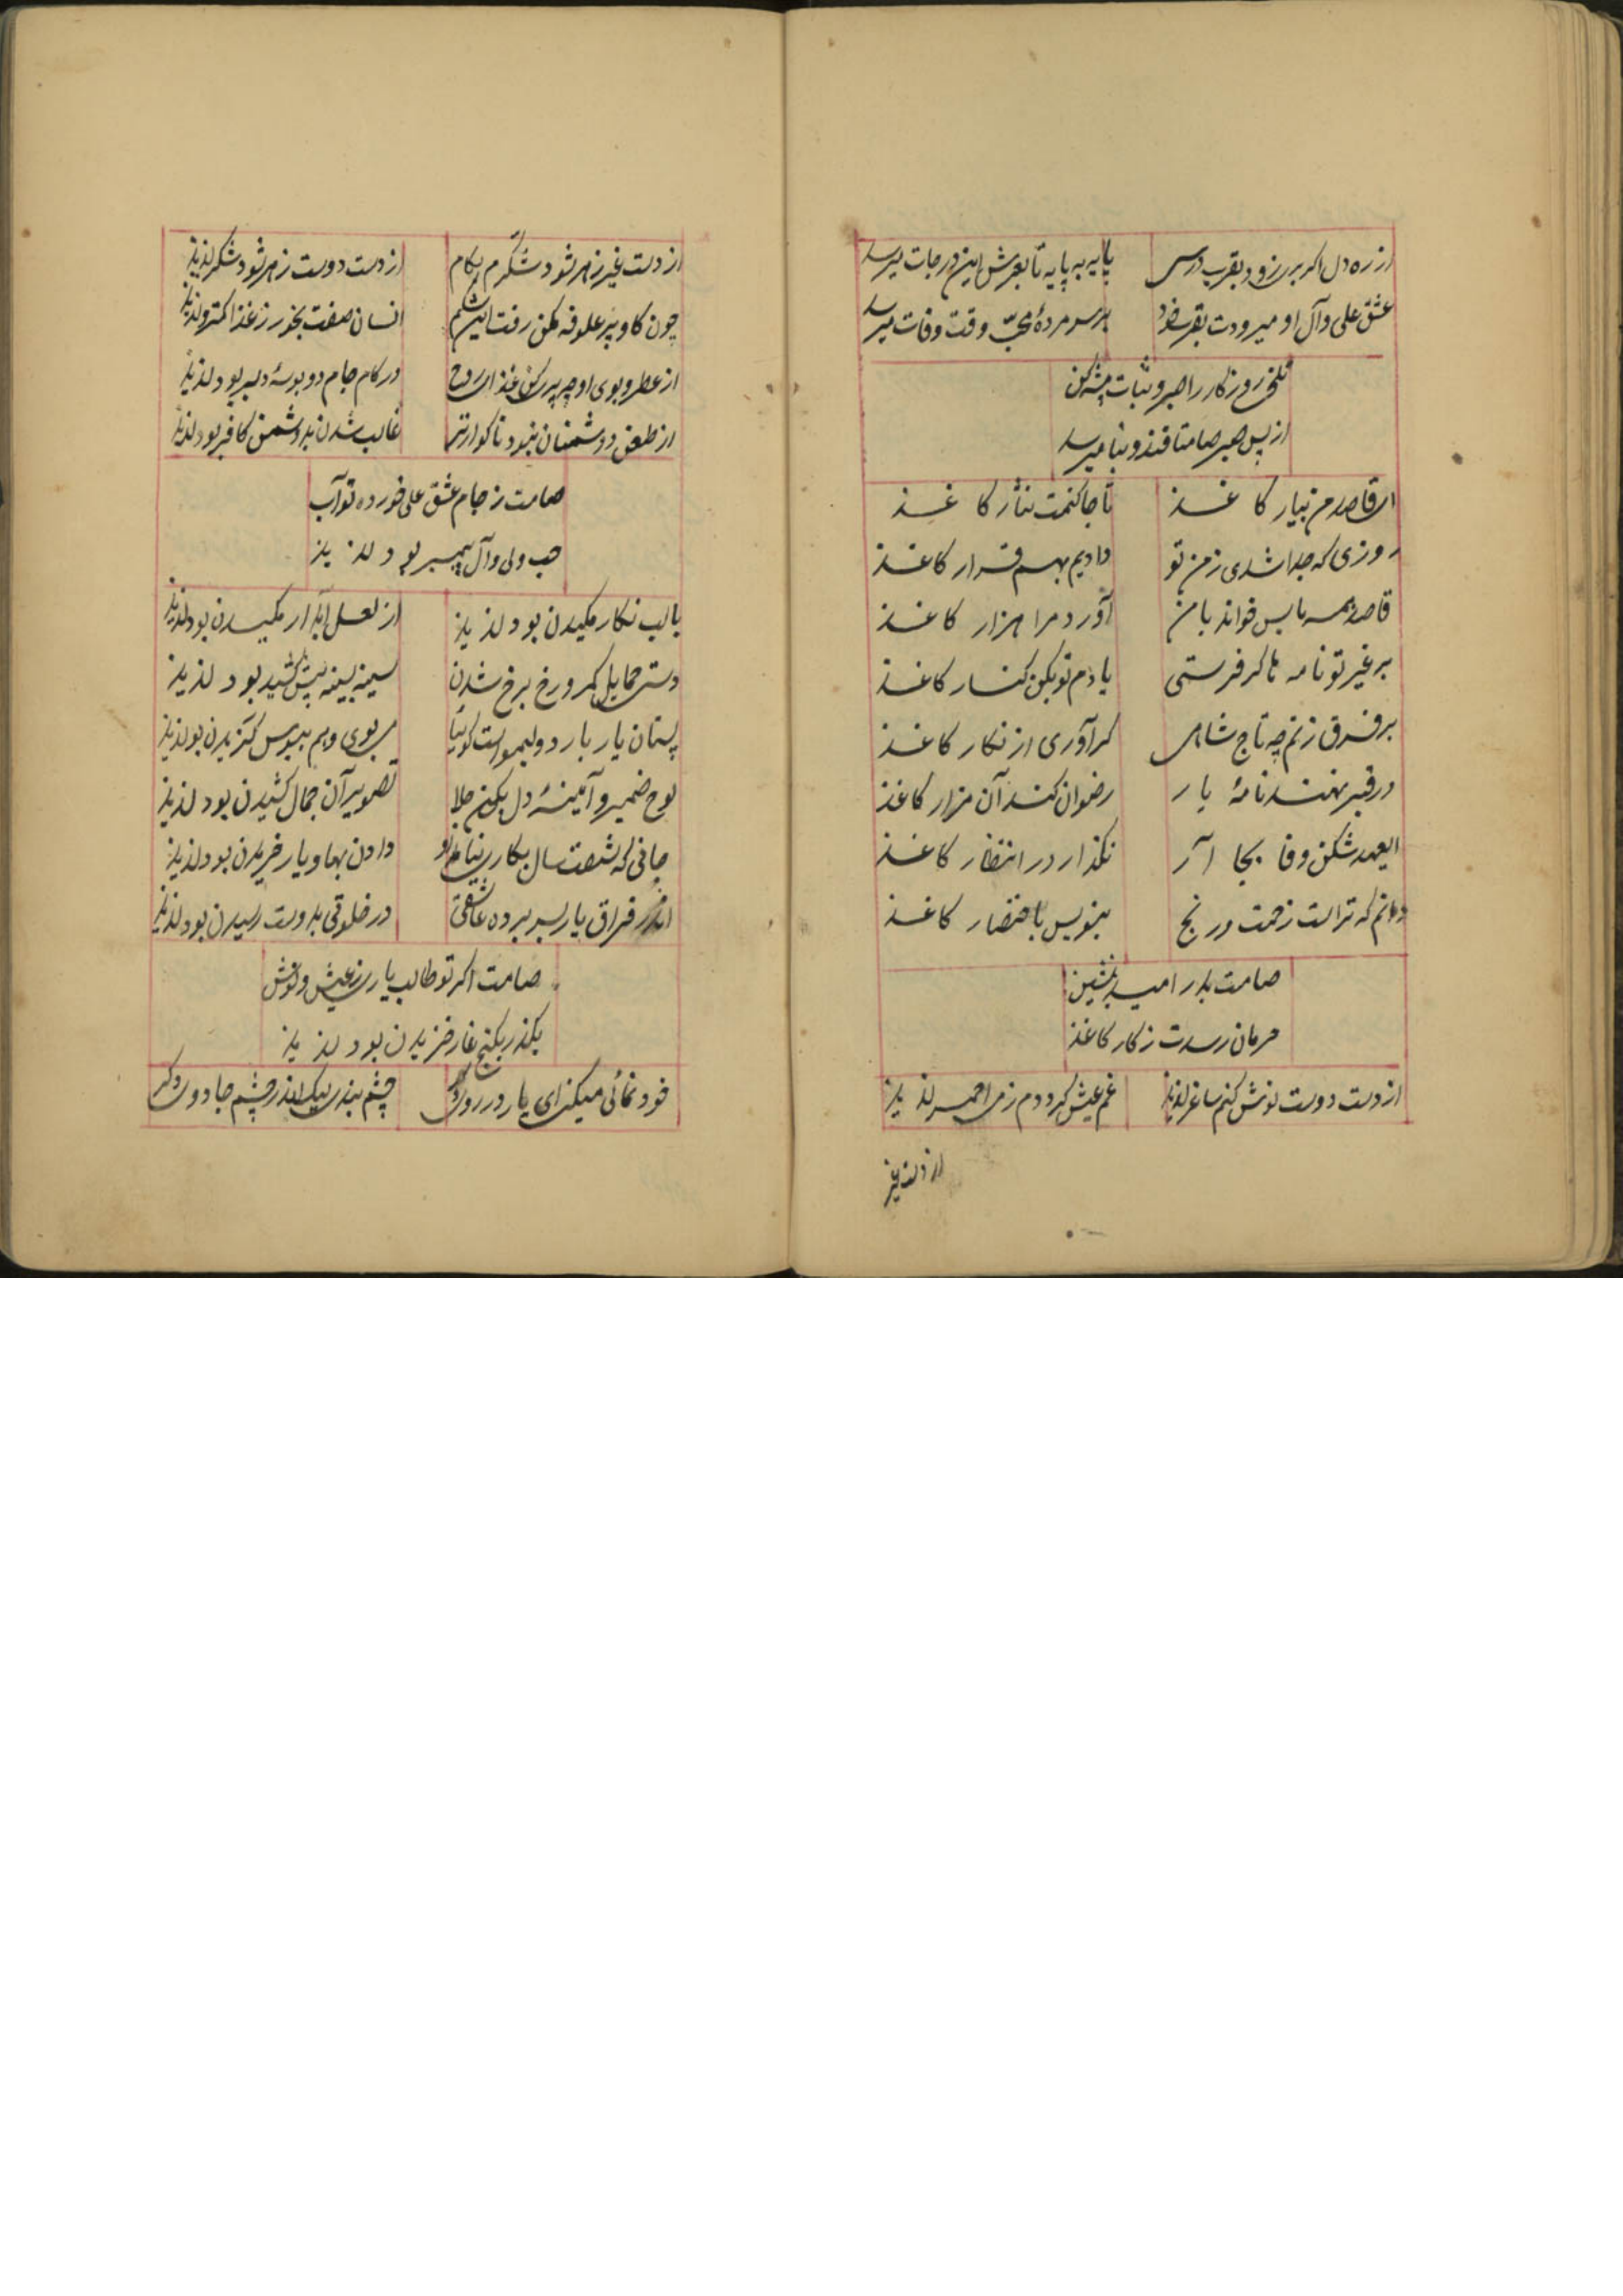 از ره دل اگر بری زود بقرب درسی پایه به پایه تا بعرش این درجات میرسد
عشق علی و آل او میرودت بقرب خود بر سر مردهٔ محبّ وقت وفات میرسد
تلخی روزکار را صبر و ثبات پیشه کن
از پس صبر صامتا قند و نبا میرسد
ای قاصد من بیار کاغذ تا جا کنمت نثار کاغذ
روزی که جدا شدی ز من تو دادیم بهم قرار کاغذ
قاصد همه یابس خواند با من آورد مرا هزار کاغذ
بر غیر تو نامه کر فرستی یادم تو بکن کنار کاغذ
بر فرق زنم چه تاج شاهی کر آوری از نکار کاغذ
در قبر نهند نامهٔ یار رضوان کند آن مزار کاغذ
ایعهد شکن وفا بجا آر نکذار در انتظار کاغذ
دانم که تراست زحمت و رنج بنویس باختصار کاغذ
صامت بدر امید بنشین
حرمان رسدت ز کار کاغذ
از دست دوست نوش کنم ساغر لذیذ غم عیش کردد م ز می احمر لذیذ
از دست غیر
از دست غیر زهر شود شکرم بکام از دست دوست زهر شود شکر لذیذ
چون کاو پر علوفه مکن رفت اشکم انسان صفت بخور ز غذا کمتر و لذیذ
از عطر و بوی او چه پرکن غذای روح در کام جام دو بوسهٔ دلبر بود لذیذ
از طعن دوشمنان نبود ناکوارتر غالب شدن بدوشمن کافر بود لذیذ
صامت ز جام عشق علی خورده تو آب
حب ولی و آل پیمبر بود لذیذ
با لب نکار مکیدن بود لذیذ از لعل آبدار مکیدن بود لذیذ
دستی حمایل کمر و رخ برخ شدن سینه بسینه پیش کشید بود لذیذ
پستان یار بار دو لیموست کوئیا بوی و هم ببوس کزیدن بود لذیذ
لوح ضمیر و آیینهٔ دل بکن جلا تصویر آن جمال کشیدن بود لذیذ
جانی که شصت سال بکاری نیامد او دادن بها و یار خریدن بود لذیذ
اندر فراق یار بسر برده عاشقی در خلوتی بدوست رسیدن بود لذیذ
صامت اکر تو طالب یاری ز عیش و نوش
بکذر بکنج غار خزیدن بود لذیذ
خود نمائی میکنی ای یار در روی دکر چشم بندی لیک اندر چشم جادوی دکر